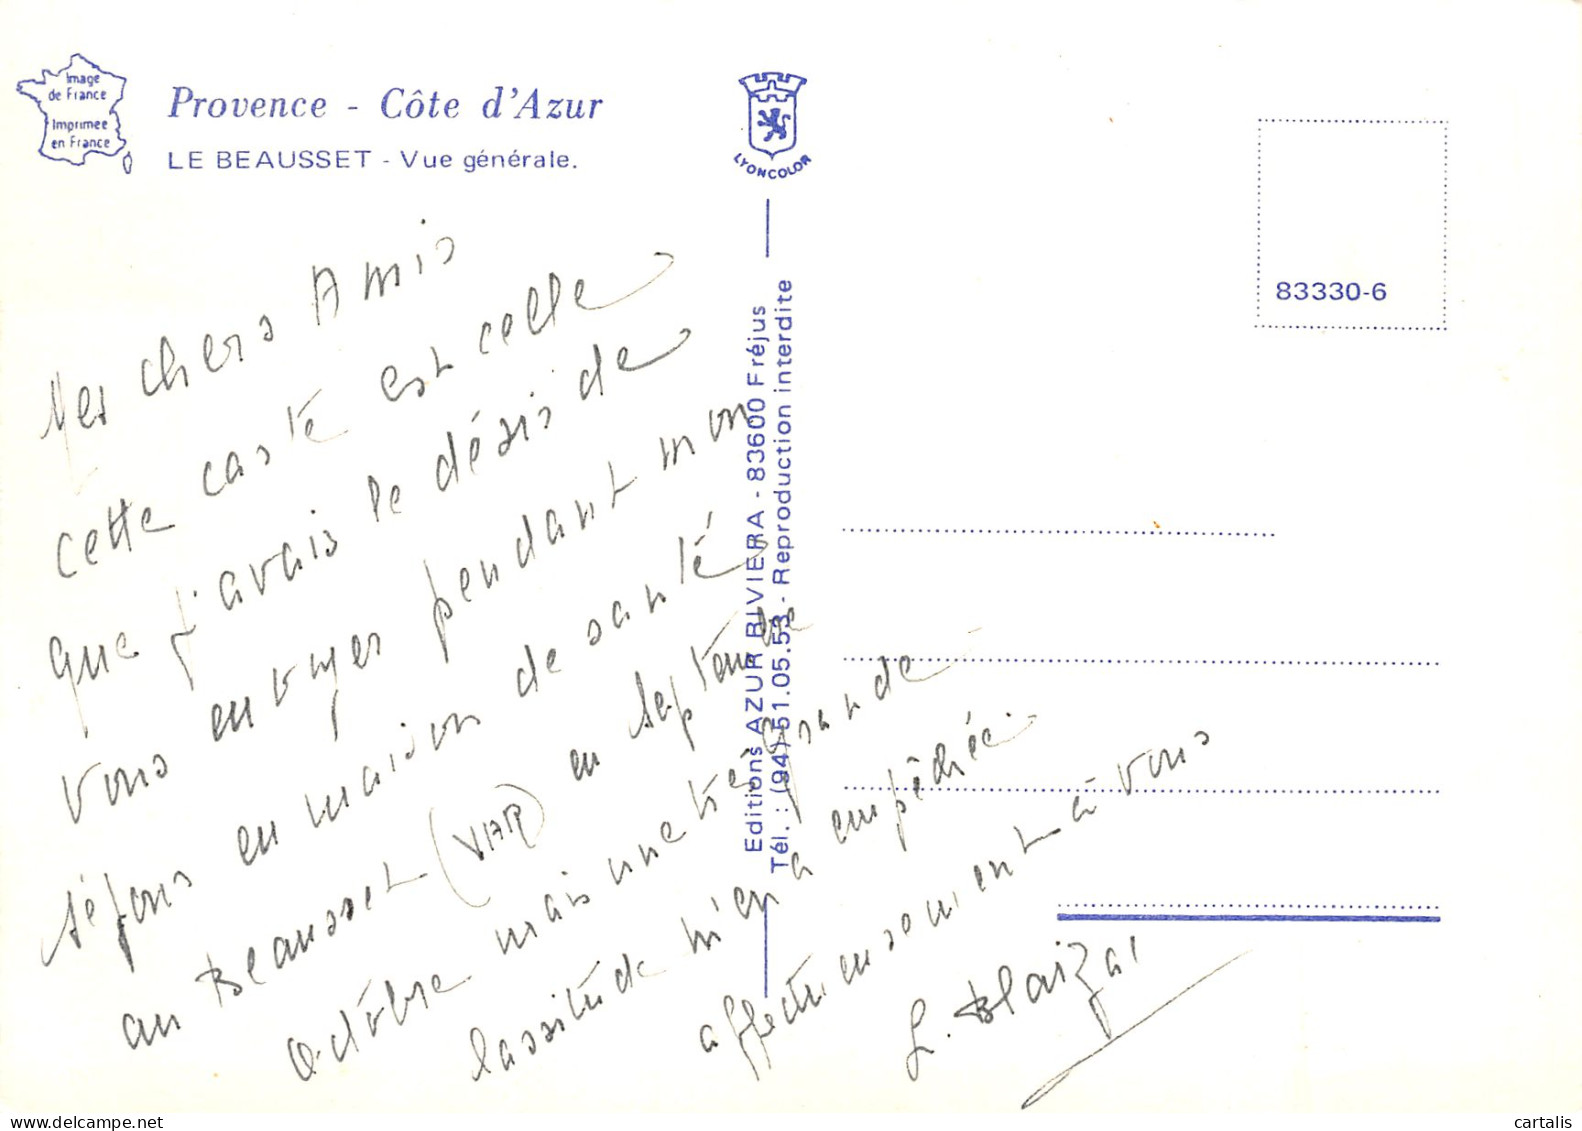 Image
de France
Imprimee
en France
Provence - Côte d'Azur
LE BEAUSSET - Vue générale.
LYONCOLOR
83330-6
Editions AZUR RIVIERA - 83600 Fréjus
Tél. : (94) 51.05.53 - Reproduction interdite
Mes chers Amis
cette carte est celle
que j'avais le désir de
vous envoyer pendant mon
séjour en maison de santé
au Beausset (VAR) en septembre
Octobre mais une très grande
lassitude m'en a empêchée.
affectueusement à vous
L. Blaizai
cartalis